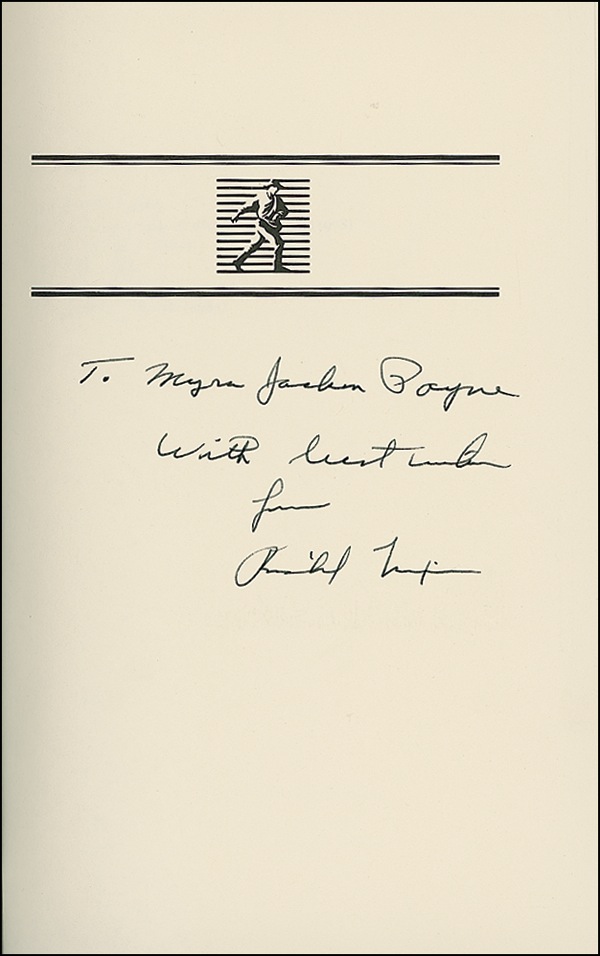 To Myra Jackson Payne
With best wishes
from
Richard Nixon